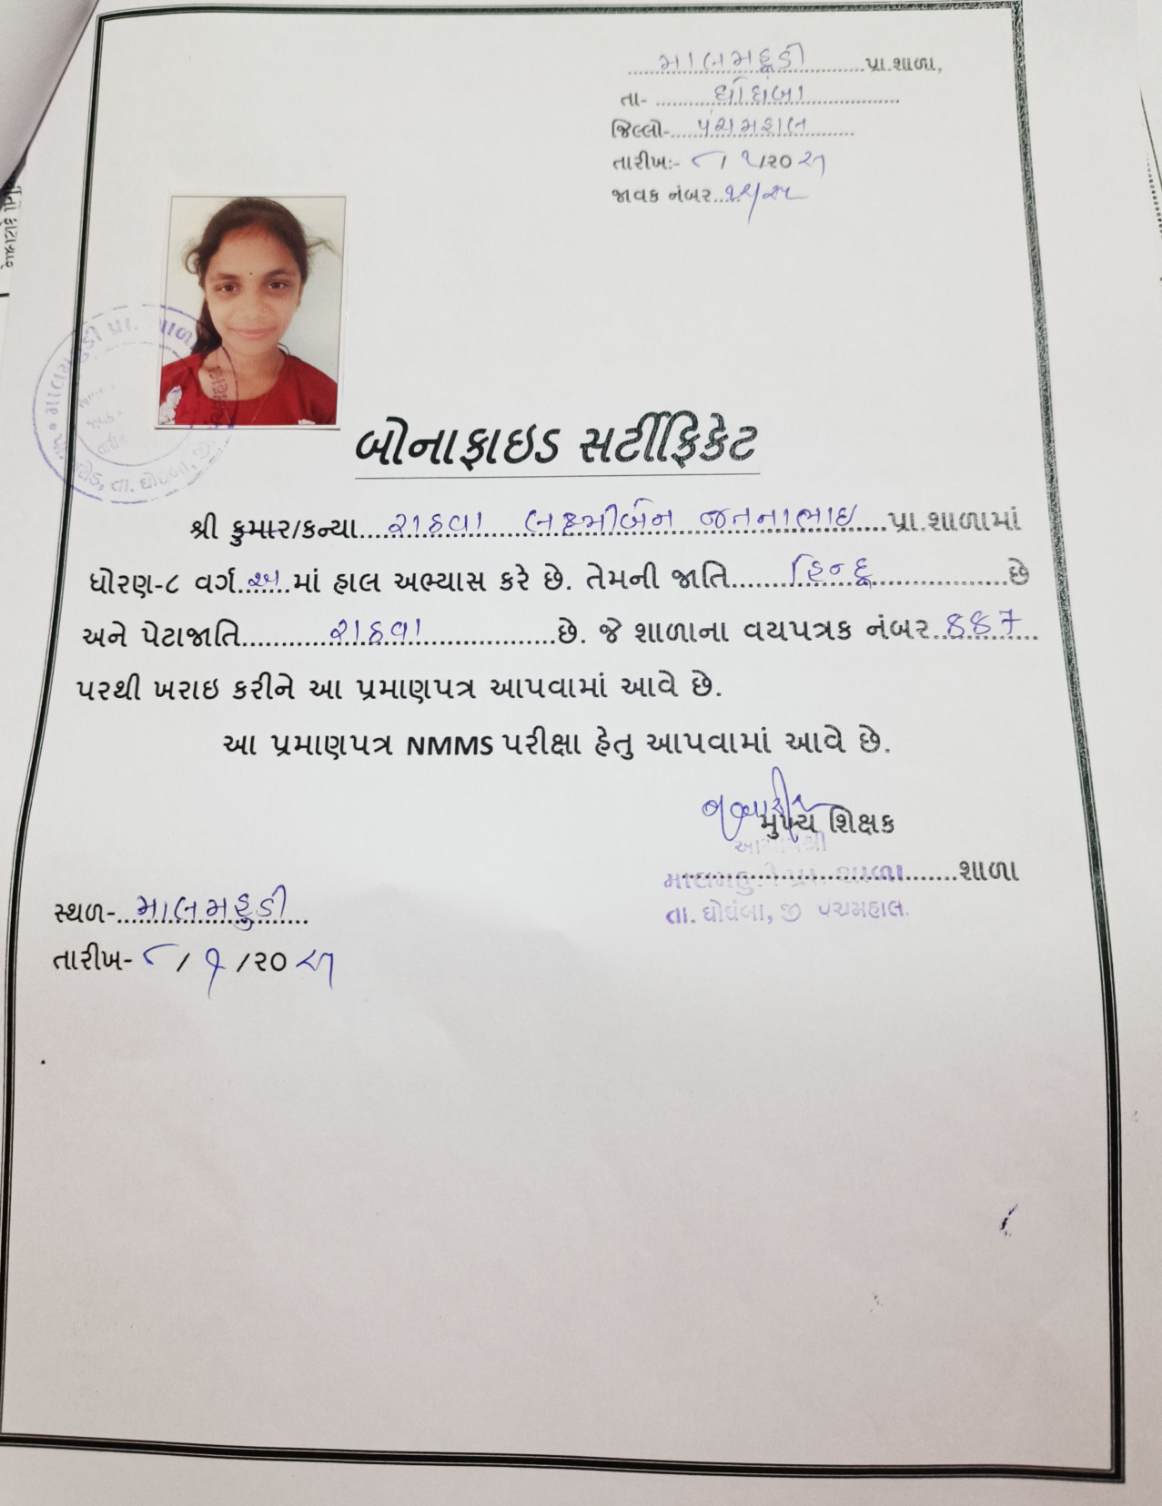 માલમહુડી પ્રા.શાળા,
તા- ઘોઘંબા
જિલ્લો- પંચમહાલ
તારીખ:- ૮/ ૧/૨૦૨૧
જાવક નંબર
બોનાફાઇડ સર્ટીફિકેટ
શ્રી કુમાર/કન્યા રાઠવા લક્ષ્મીબેન જતનાભાઇ પ્રા.શાળામાં
ધોરણ-૮ વર્ગ અ માં હાલ અભ્યાસ કરે છે. તેમની જાતિ હિન્દુ છે
અને પેટાજાતિ રાઠવા છે. જે શાળાના વયપત્રક નંબર 887
પરથી ખરાઇ કરીને આ પ્રમાણપત્ર આપવામાં આવે છે.
આ પ્રમાણપત્ર NMMS પરીક્ષા હેતુ આપવામાં આવે છે.
મુખ્ય શિક્ષક
શાળા
તા. ઘોઘંબા, જી પંચમહાલ.
સ્થળ- માલમહુડી
તારીખ- ૮/ ૧ /૨૦૨૧